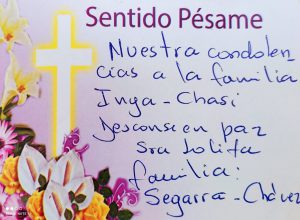 Sentido Pésame
Nuestra condolen
cias a la familia
Inga - Chasi
Desconse en paz
Sra Lolita
familia:
Segarra - Chávez